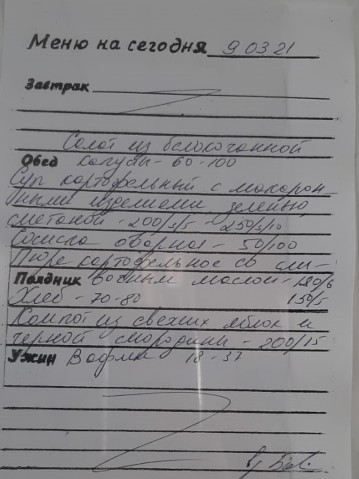 Меню на сегодня 9 03 21
Завтрак
Салат из белокочанной
Обед капусты - 60 - 100
Суп картофельный с макарон
ными изделиями зеленью
сметаной - 200/5/5 - 250/5/10
Сосиска отварная - 50/100
Пюре картофельное со сли-
Полдник вочным маслом - 180/6
Хлеб - 70-80 150/5
Компот из свежих яблок и
черной смородины - 200/15
Ужин Вафли 18 - 37